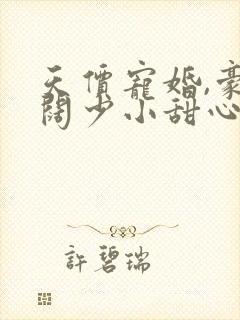 天價寵婚,豪
闊少小甜心
許碧瑞